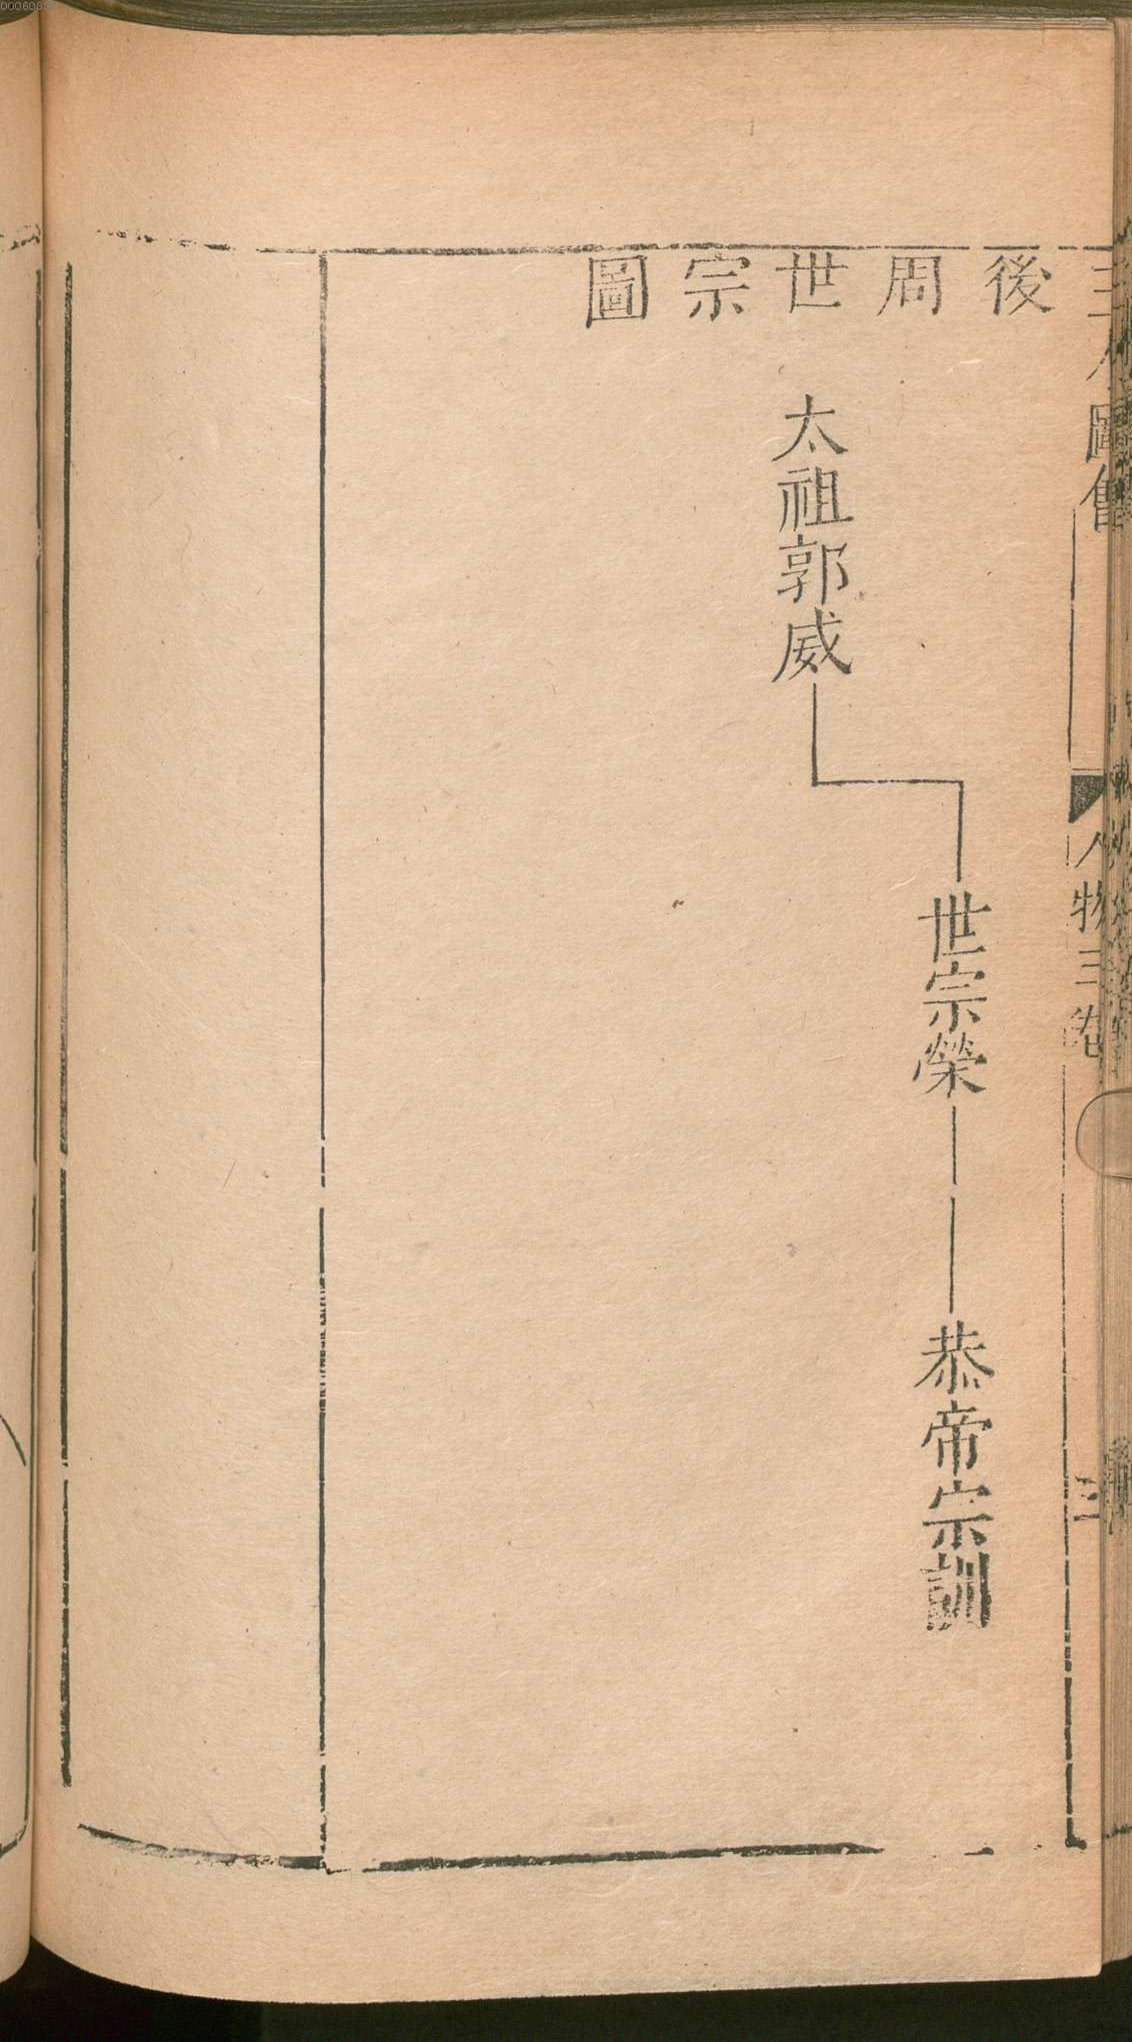 後周世宗圖
太祖郭威
世宗榮
恭帝宗訓
圖會
人物三卷
三
000608